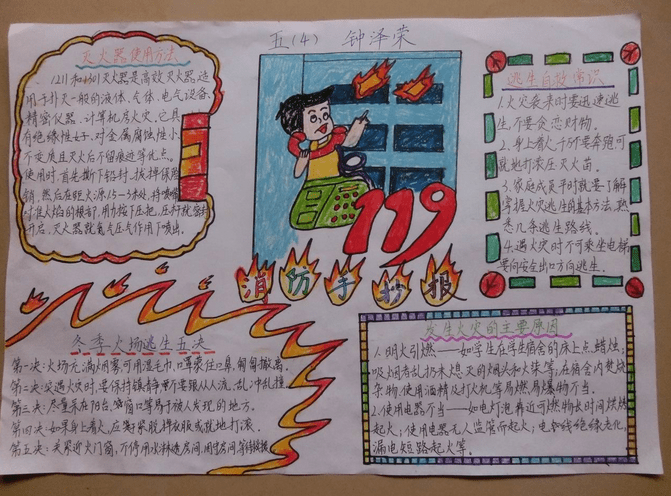 五(4) 钟泽荣
灭火器使用方法
1211和 灭火器是高效灭火器,适
用于扑灭一般的液体、气体、电气设备、
精密仪器、计算机房火灾。它具
有绝缘性好、对金属腐蚀性小、
不变质且灭火后不留痕迹等优点。
使用时首先撕下铅封、拔掉保险
销,然后在距火源1.5-3米处,将喷嘴
对准火焰的根部,用力按下压把,压
开启,灭火器就 气压气作用下喷出。
119
消防手抄报
逃生自救常识
1.火灾袭来时要迅速逃
生,不要贪恋财物。
2.身上着火,千万不要奔跑可
就地打滚压灭火苗。
3.家庭成员平时就要了解
掌握火灾逃生的基本方法,熟
悉几条逃生路线。
4.遇火灾时不可乘坐电梯
要向安全出口方向逃生。
冬季火场逃生五决
第一决:火场 满烟雾,可用湿毛巾、口罩表住口鼻,匍匐撤离。
第二决:突遇火灾时,要保持镇静,千万不要狠从人流、乱冲乱撞。
第三决:尽量呆在阳台、窗口等易于被人发现的地方。
第四决:如果身上着火,应 脱掉衣服或就地打滚。
第五决:关紧近火门窗,不停用水淋透房间,固守房间等待救援。
发生火灾的主要原因
1.明火引燃——如学生在学生宿舍的床上点蜡烛;
吸烟者乱扔未熄灭的烟头和火柴等;在宿舍内焚烧
杂物、使用酒精及打火机等易燃易爆物不当。
2.使用电器不当——如电灯泡靠近可燃物长时间烘烤
起火;使用电器无人监管而起火;电气线绝缘老化,
漏电短路起火等。